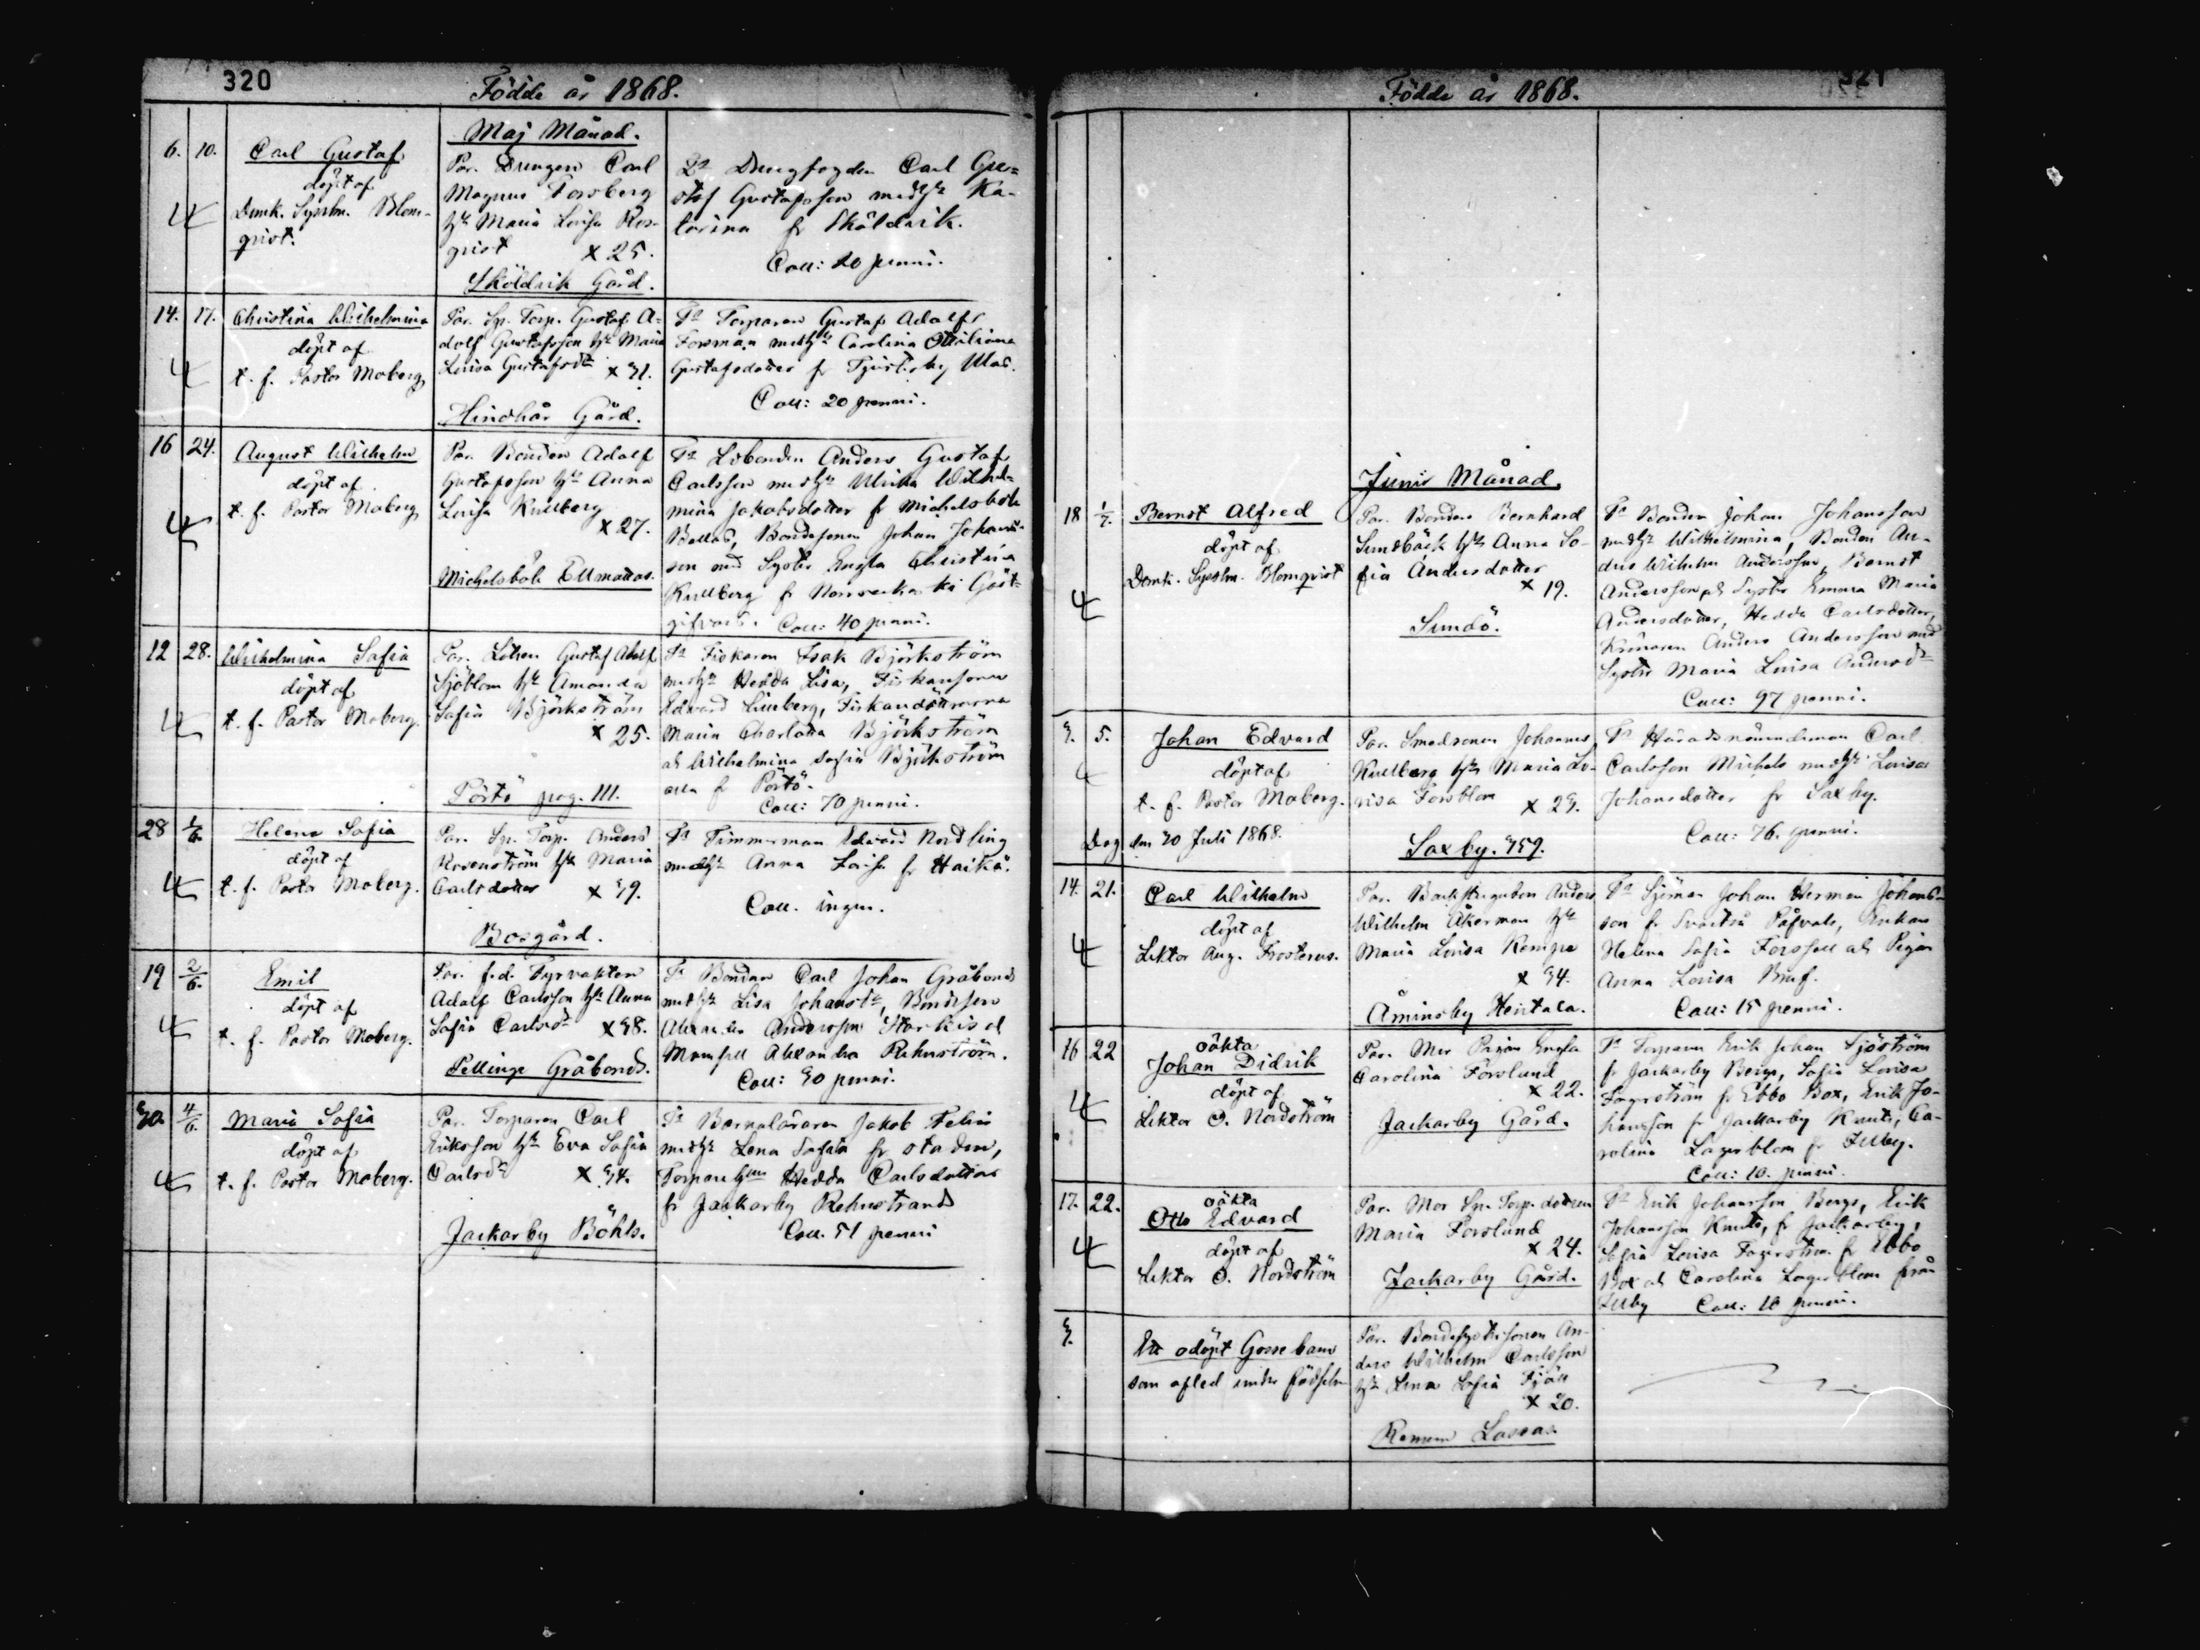 320
Födde år 1868.
Maj Månad.
6. 10. Carl Gustaf
döpt af
Domk. Sysslm. Blom-
qvist.
Par. Drengen Carl
Magnus Forsberg
hu Maria Lovisa Ros-
qvist x 25.
Sköldvik Gård.
Drengfogden Carl Gu-
staf Gustafsson med hu Ka-
tarina fr Sköldvik.
Coll: 20 penni.
14. 17. Christina Wilhelmina
döpt af
t. f. Pastor Moberg
Par. Sp. Torp. Gustaf A-
dolf Gustafsson hu Maria
Lovisa Gustafsdr x 31.
Hindhår Gård.
Torparen Gustaf Adolf
Forsman med hu Carolina
Gustafsdotter fr
Coll: 20 penni.
16 24. August Wilhelm
döpt af
t. f. Pastor Moberg
Par. Bonden Adolf
Gustafsson hu Anna
Lovisa Kullberg
x 27.
Michelsböle Ellmattas.
Anders Gustaf
Carlsson med hu Ulrika Wilhel-
mina Jakobsdotter fr Michelsböle
Bondesonen Johan Johans-
son med Syster Engla Christina
Kullberg fr Gäst-
gifvars. Coll: 40 penni.
12 28. Wilhelmina Sofia
döpt af
t. f. Pastor Moberg.
Par. Lotsen Gustaf Adolf
Sjöblom hu Amanda
Sofia Björkström
x 25.
Pörtö pag. 111.
Fiskaren Isak Björkström
med hu Hedda Lisa, Fiskarsonen
Edvard Fiskaredöttrarna
Maria Charlotta Björkström
och Wilhelmina Sofia Björkström
alla fr Pörtö.
Coll: 70 penni.
28 1/6. Helena Sofia
döpt af
t. f. Pastor Moberg.
Par. Sp. Torp. Anders
Rosenström hu Maria
Carlsdotter x 39.
Bosgård.
Timmerman Edvard Nordling
med hu Anna Lovisa fr Haikå.
Coll. ingen.
19 2/6. Emil
döpt af
t. f. Pastor Moberg.
Par. f.d. Fyrvakten
Adolf Carlsson hu Anna
Sofia Carlsdr x 38.
Pellinge Gråbonds.
Bonden Carl Johan Gråbonds
med hu Lisa Johansdr, Bondeson
Alexander Andersson
Mamsell Alexandra Rehnström.
Coll: 30 penni.
30. 4/6. Maria Sofia
döpt af
t. f. Pastor Moberg.
Par. Torparen Carl
Eriksson hu Eva Sofia
Carlsdr x 34.
Jackarby Böhls.
Barnaläraren Jakob
med hu Lena Sofia fr staden,
Hedda Carlsdotter
fr Jackarby Rehnstrands
Coll. 51 penni
321
Födde år 1868.
Junii Månad.
18 1/7. Bernst Alfred
döpt af
Domk. Sysslm. Blomqvist
Par. Bonden Bernhard
Sundbäck hu Anna So-
fia Andersdotter
x 19.
Sundö.
Bonden Johan Johansson
med hu Wilhelmina, Bonden An-
ders Wilhelm Andersson, Bernst
Andersson och Syster Emma Maria
Andersdotter, Hedda Carlsdotter,
Krämaren Anders Andersson med
Syster Maria Lovisa Andersdr
Coll: 97 penni.
3. 5. Johan Edvard
döpt af
t. f. Pastor Moberg.
Dog den 30 Juli 1868.
Par. Smedsonen Johannes
Kullberg hu Maria Lo-
visa Forsblom x 23.
Saxby. 359.
Häradsnämndeman Carl
Carlsson Michels med hu Lovisa
Johansdotter fr Saxby.
Coll: 76. penni.
14. 21. Carl Wilhelm
döpt af
Lektor Aug. Frosterus.
Par. Backstugubon Anders
Wilhelm Åkerman hu
Maria Lovisa Kempe
x 34.
Åminsby Heikala.
Sjöman Johan Herman Johans-
son fr Svartså Påfvals, Enkan
Helena Sofia Forssell och Pigan
Anna Lovisa
Coll: 15 penni.
16 22 oäkta
Johan Didrik
döpt af
Lektor O. Nordström
Par. Mor Pigan Engla
Carolina Forslund
x 22.
Jackarby Gård.
Torparen Erik Johan Sjöström
fr Jackarby Bergs, Sofia Lovisa
Fagerström fr Ebbo Box, Erik Jo-
hansson fr Jackarby Knuts, Ca-
rolina Lagerblom fr Illby.
Coll: 10. penni.
17. 22. oäkta
Otto Edvard
döpt af
Lektor O. Nordström
Par. Mor Sp. Torp. dottren
Maria Forslund
x 24.
Jackarby Gård.
Erik Johansson Bergs, Erik
Johansson Knuts, fr Jackarby,
Sofia Lovisa Fagerström fr Ebbo
Box och Carolina Lagerblom från
Illby Coll: 10 penni.
3. Ett odöpt Gossebarn
som afled under födseln
Par. An-
ders Wilhelm Carlsson
hu Lena Sofia
x 20.
Lassas.